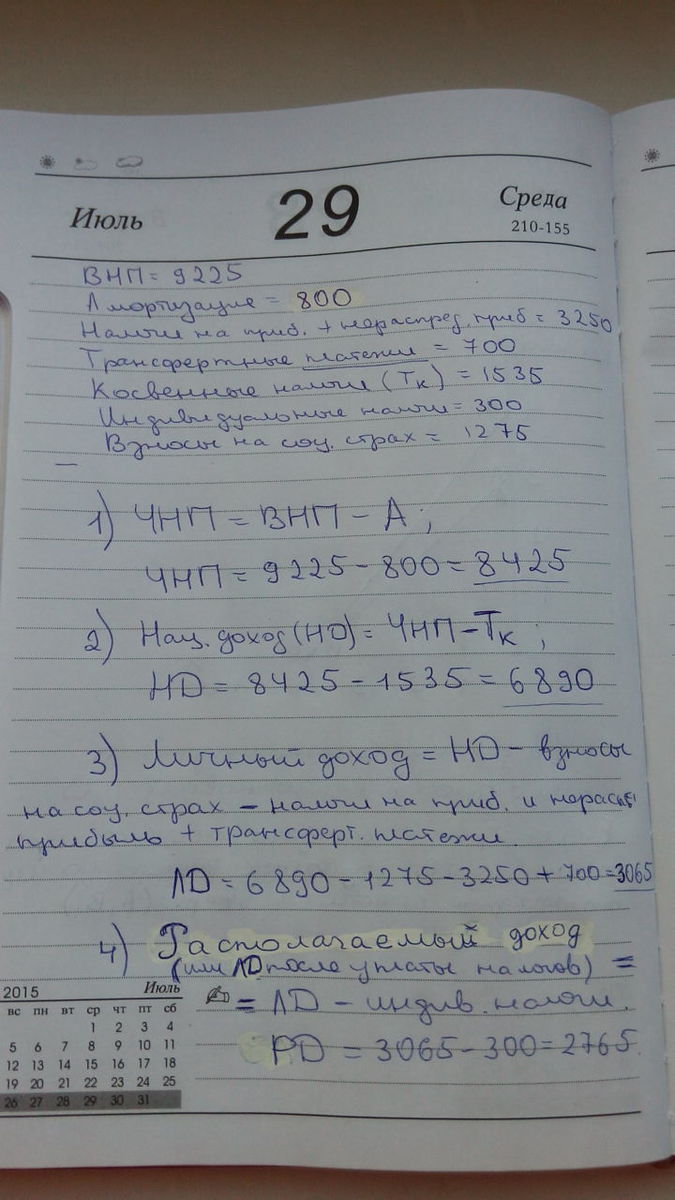 Июль
29
Среда
210-155
ВНП = 9225
Амортизация = 800
Налоги на приб. + нераспред. приб = 3250
Трансфертные платежи = 700
Косвенные налоги (Тк) = 1535
Индивидуальные налоги = 300
Взносы на соц. страх = 1275
1) ЧНП = ВНП - А ;
ЧНП = 9225 - 800 = 8425
2) Нац. доход (НД) = ЧНП - Тк ;
НД = 8425 - 1535 = 6890
3) Личный доход = НД - взносы
на соц. страх - налоги на приб. и нерасп
прибыль + трансферт. платежи
ЛД = 6890 - 1275 - 3250 + 700 = 3065
4) Располагаемый доход
(или ЛД после уплаты налогов) =
= ЛД - индив. налоги.
РД = 3065 - 300 = 2765.
2015 Июль
вс пн вт ср чт пт сб
1 2 3 4
5 6 7 8 9 10 11
12 13 14 15 16 17 18
19 20 21 22 23 24 25
26 27 28 29 30 31